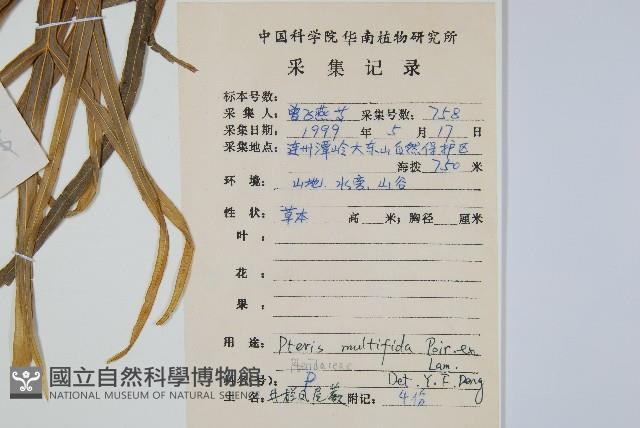 中国科学院华南植物研究所
采集记录
标本号数:
采集人: 曾飞燕等 采集号数: 758
采集日期: 1999 年 5 月 17 日
采集地点: 连州潭岭大东山自然保护区
海拨 750 米
环 境: 山地, 水旁, 山谷
性 状: 草本 高 米; 胸径 厘米
叶 :
花 :
果 :
用 途: Pteris multifida Poir. ex
Lam.
Pteridaceae
号): P Det. Y. F. Deng
名: 井栏凤尾蕨 附记: 4份
國立自然科學博物館
NATIONAL MUSEUM OF NATURAL SCIENCE